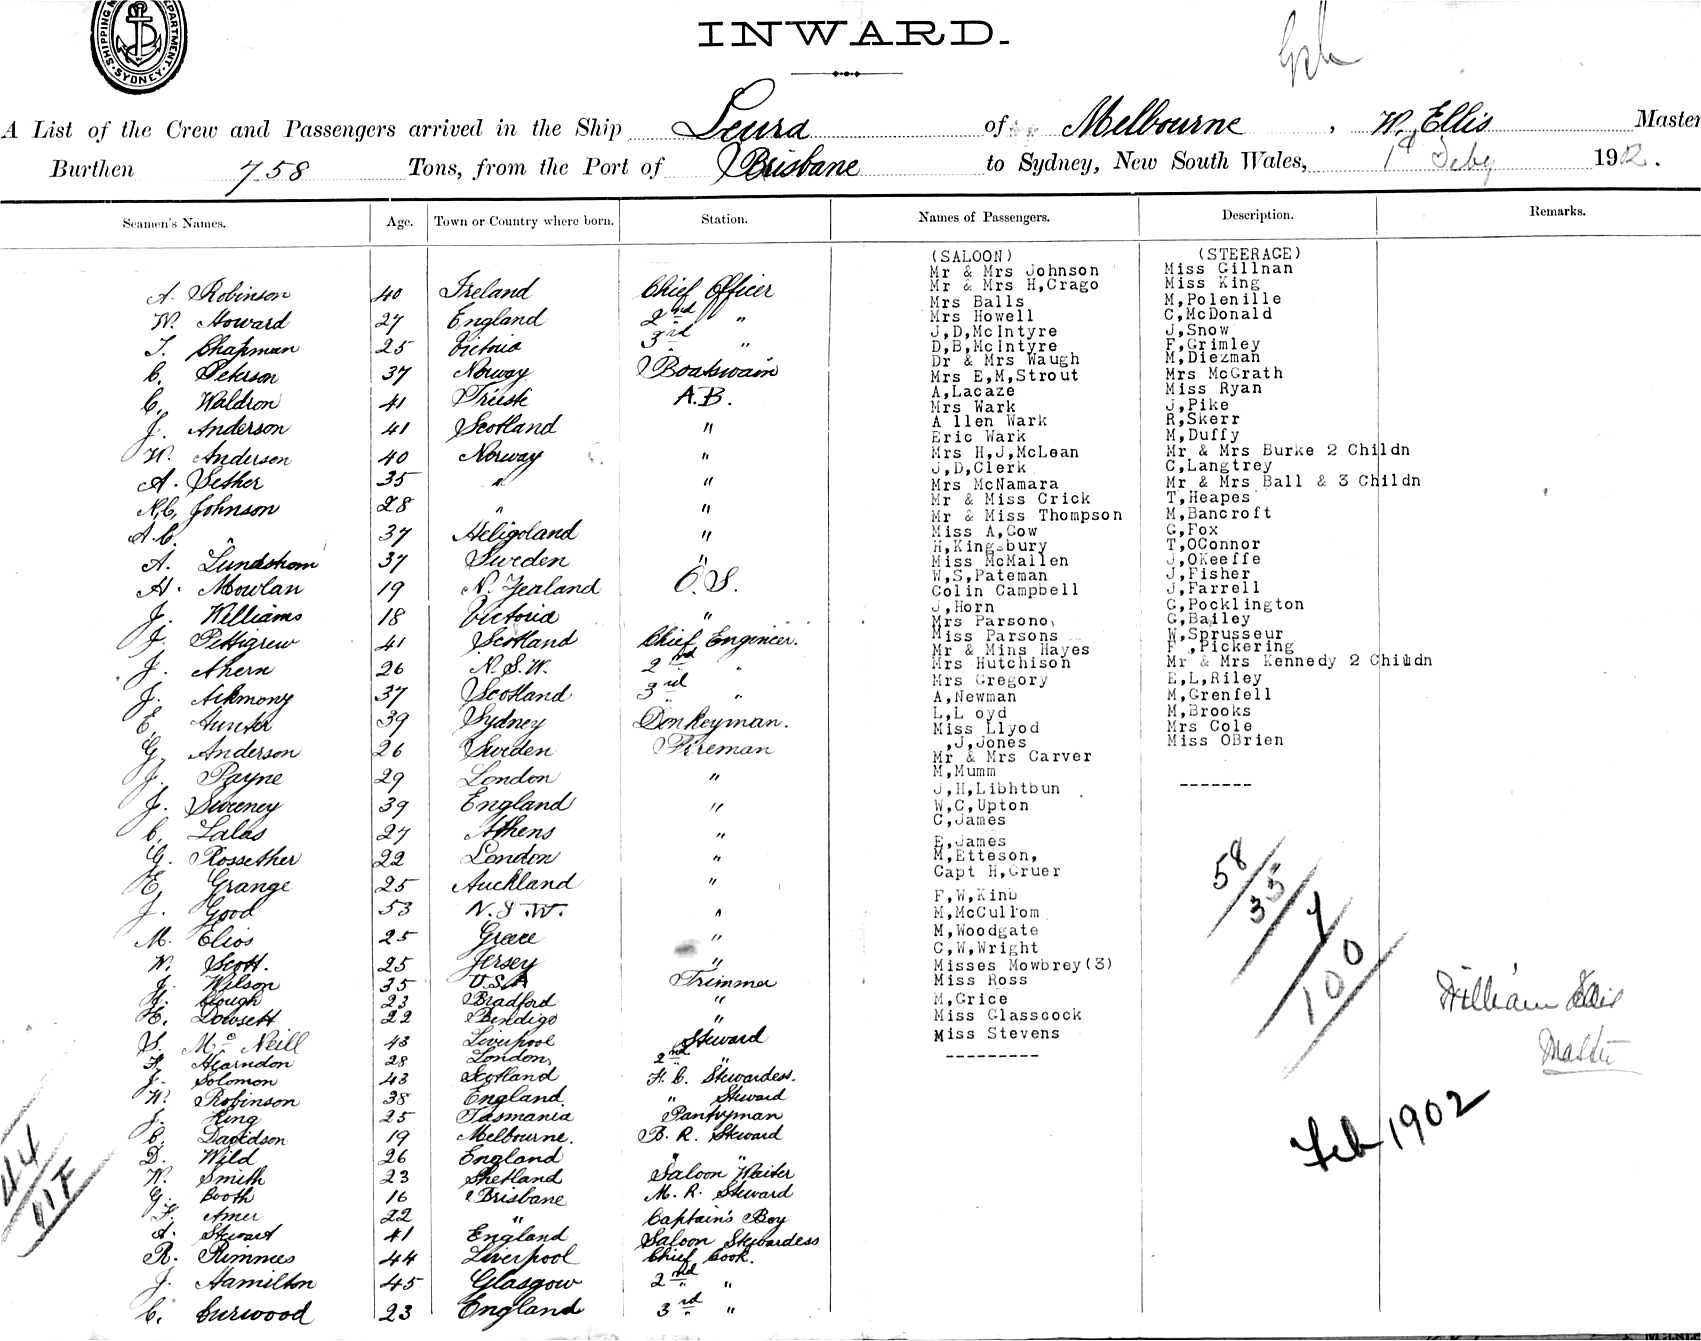 SHIPPING DEPARTMENT SYDNEY
INWARD.
A List of the Crew and Passengers arrived in the Ship Leura of Melbourne, W. Ellis Master
Burthen 758 Tons, from the Port of Brisbane to Sydney, New South Wales, 1st Feby 1902.
Seamen's Names. Age. Town or Country where born. Station. Names of Passengers. Description. Remarks.
A. Robinson 40 Ireland Chief Officer
W. Howard 27 England 2nd "
T. Chapman 25 Victoria 3rd "
C. Peterson 37 Norway Boatswain
C. Waldron 41 Trieste A.B.
J. Anderson 41 Scotland "
W. Anderson 40 Norway "
A. Sether 35 " "
N.C. Johnson 28 " "
A.C. " 37 Heligoland "
A. Lundstrom 37 Sweden "
H. Mowlan 19 N. Zealand O.S.
J. Williams 18 Victoria "
J. Pettigrew 41 Scotland Chief Engineer.
J. Ahern 26 N.S.W. 2nd "
J. Ackmony 37 Scotland 3rd "
E. Hunter 39 Sydney Donkeyman.
G. Anderson 26 Sweden Fireman
J. Payne 29 London "
J. Sweeney 39 England "
C. Lalas 27 Athens "
G. Rossether 22 London "
E. Grange 25 Auckland "
J. Good 53 N.S.W. "
M. Elios 25 Greece "
W. Scott. 25 Jersey "
J. Wilson 35 U.S.A Trimmer
H. Clough 23 Bradford "
H. Dowsett 22 Bendigo "
S. McNeill 43 Liverpool Steward
F. Hearndon 28 London 2nd "
J. Solomon 43 Scotland F.C. Stewardess.
W. Robinson 38 England " Steward
J. King 25 Tasmania Pantryman
C. Davidson 19 Melbourne. B.R. Steward
D. Wild 26 England " "
W. Smith 23 Shetland Saloon Waiter
G. Booth 16 Brisbane M.R. Steward
F. Amer 22 " Captain's Boy
A. Stewart 41 England Saloon Stewardess
R. Rimmes 44 Liverpool Chief Cook.
J. Hamilton 45 Glasgow 2nd "
C. Curwood 23 England 3rd "
(SALOON)
Mr & Mrs Johnson
Mr & Mrs H,Crago
Mrs Balls
Mrs Howell
J,D,McIntyre
D,B,McIntyre
Dr & Mrs Waugh
Mrs E,M,Strout
A,Lacaze
Mrs Wark
A llen Wark
Eric Wark
Mrs H,J,McLean
J,D,Clerk
Mrs McNamara
Mr & Miss Crick
Mr & Miss Thompson
Miss A,Gow
H,Kingsbury
Miss McMallen
W,S,Pateman
Colin Campbell
J,Horn
Mrs Parsono,
Miss Parsons
Mr & Mins Hayes
Mrs Hutchison
Mrs Gregory
A,Newman
L,L oyd
Miss Llyod
,J,Jones
Mr & Mrs Carver
M,Mumm
J,H,Libhtbun
W,C,Upton
C,James
E,James
M,Etteson,
Capt H,Gruer
F,W,Kinb
M,McCullom
M,Woodgate
C,W,Wright
Misses Mowbrey(3)
Miss Ross
M,Grice
Miss Glasscock
Miss Stevens
---------
(STEERAGE)
Miss Gillnan
Miss King
M,Polenille
C,McDonald
J,Snow
F,Grimley
M,Diezman
Mrs McGrath
Miss Ryan
J,Pike
R,Skerr
M,Duffy
Mr & Mrs Burke 2 Childn
C,Langtrey
Mr & Mrs Ball & 3 Childn
T,Heapes
M,Bancroft
G,Fox
T,OConnor
J,OKeeffe
J,Fisher
J,Farrell
G,Pocklington
G,Bailey
W,Sprusseur
F ,Pickering
Mr & Mrs Kennedy 2 Childn
E,L,Riley
M,Grenfell
M,Brooks
Mrs Cole
Miss OBrien
-------
58/35/7/100
William Ellis
Master
Feb 1902
44